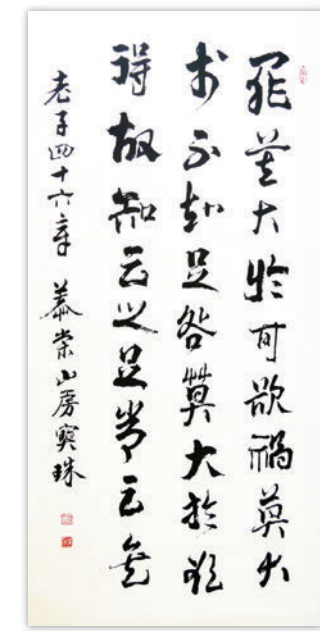 罪莫大於可欲禍莫大
於不知足咎莫大於欲
得故知足之足常足矣
老子四十六章 山房寶珠